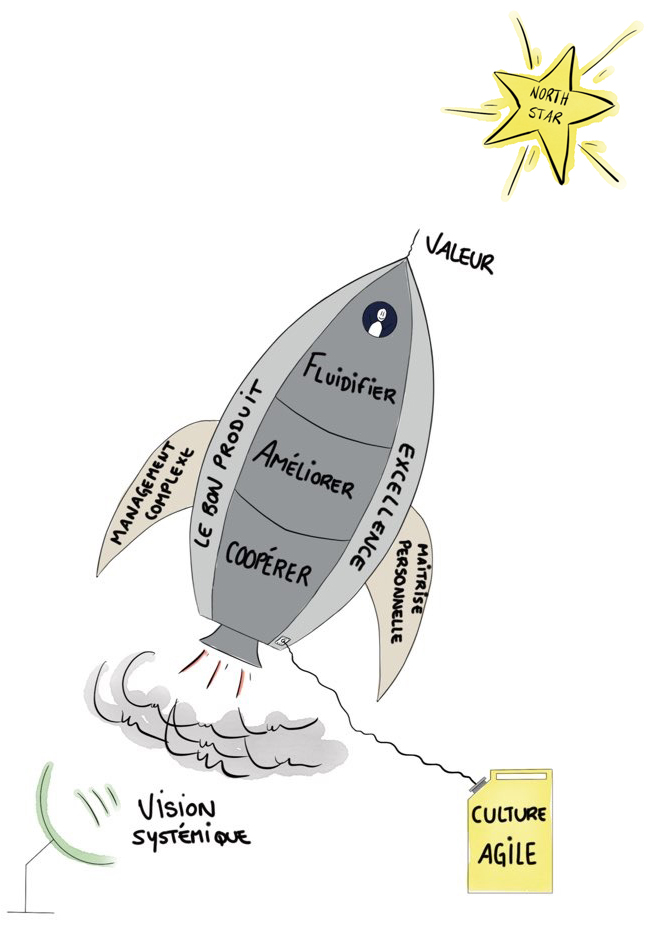 NORTH
STAR
VALEUR
FLUIDIFIER
AMÉLIORER
COOPÉRER
LE BON PRODUIT
EXCELLENCE
MANAGEMENT
COMPLEXE
MAÎTRISE
PERSONNELLE
VISION
SYSTÉMIQUE
CULTURE
AGILE